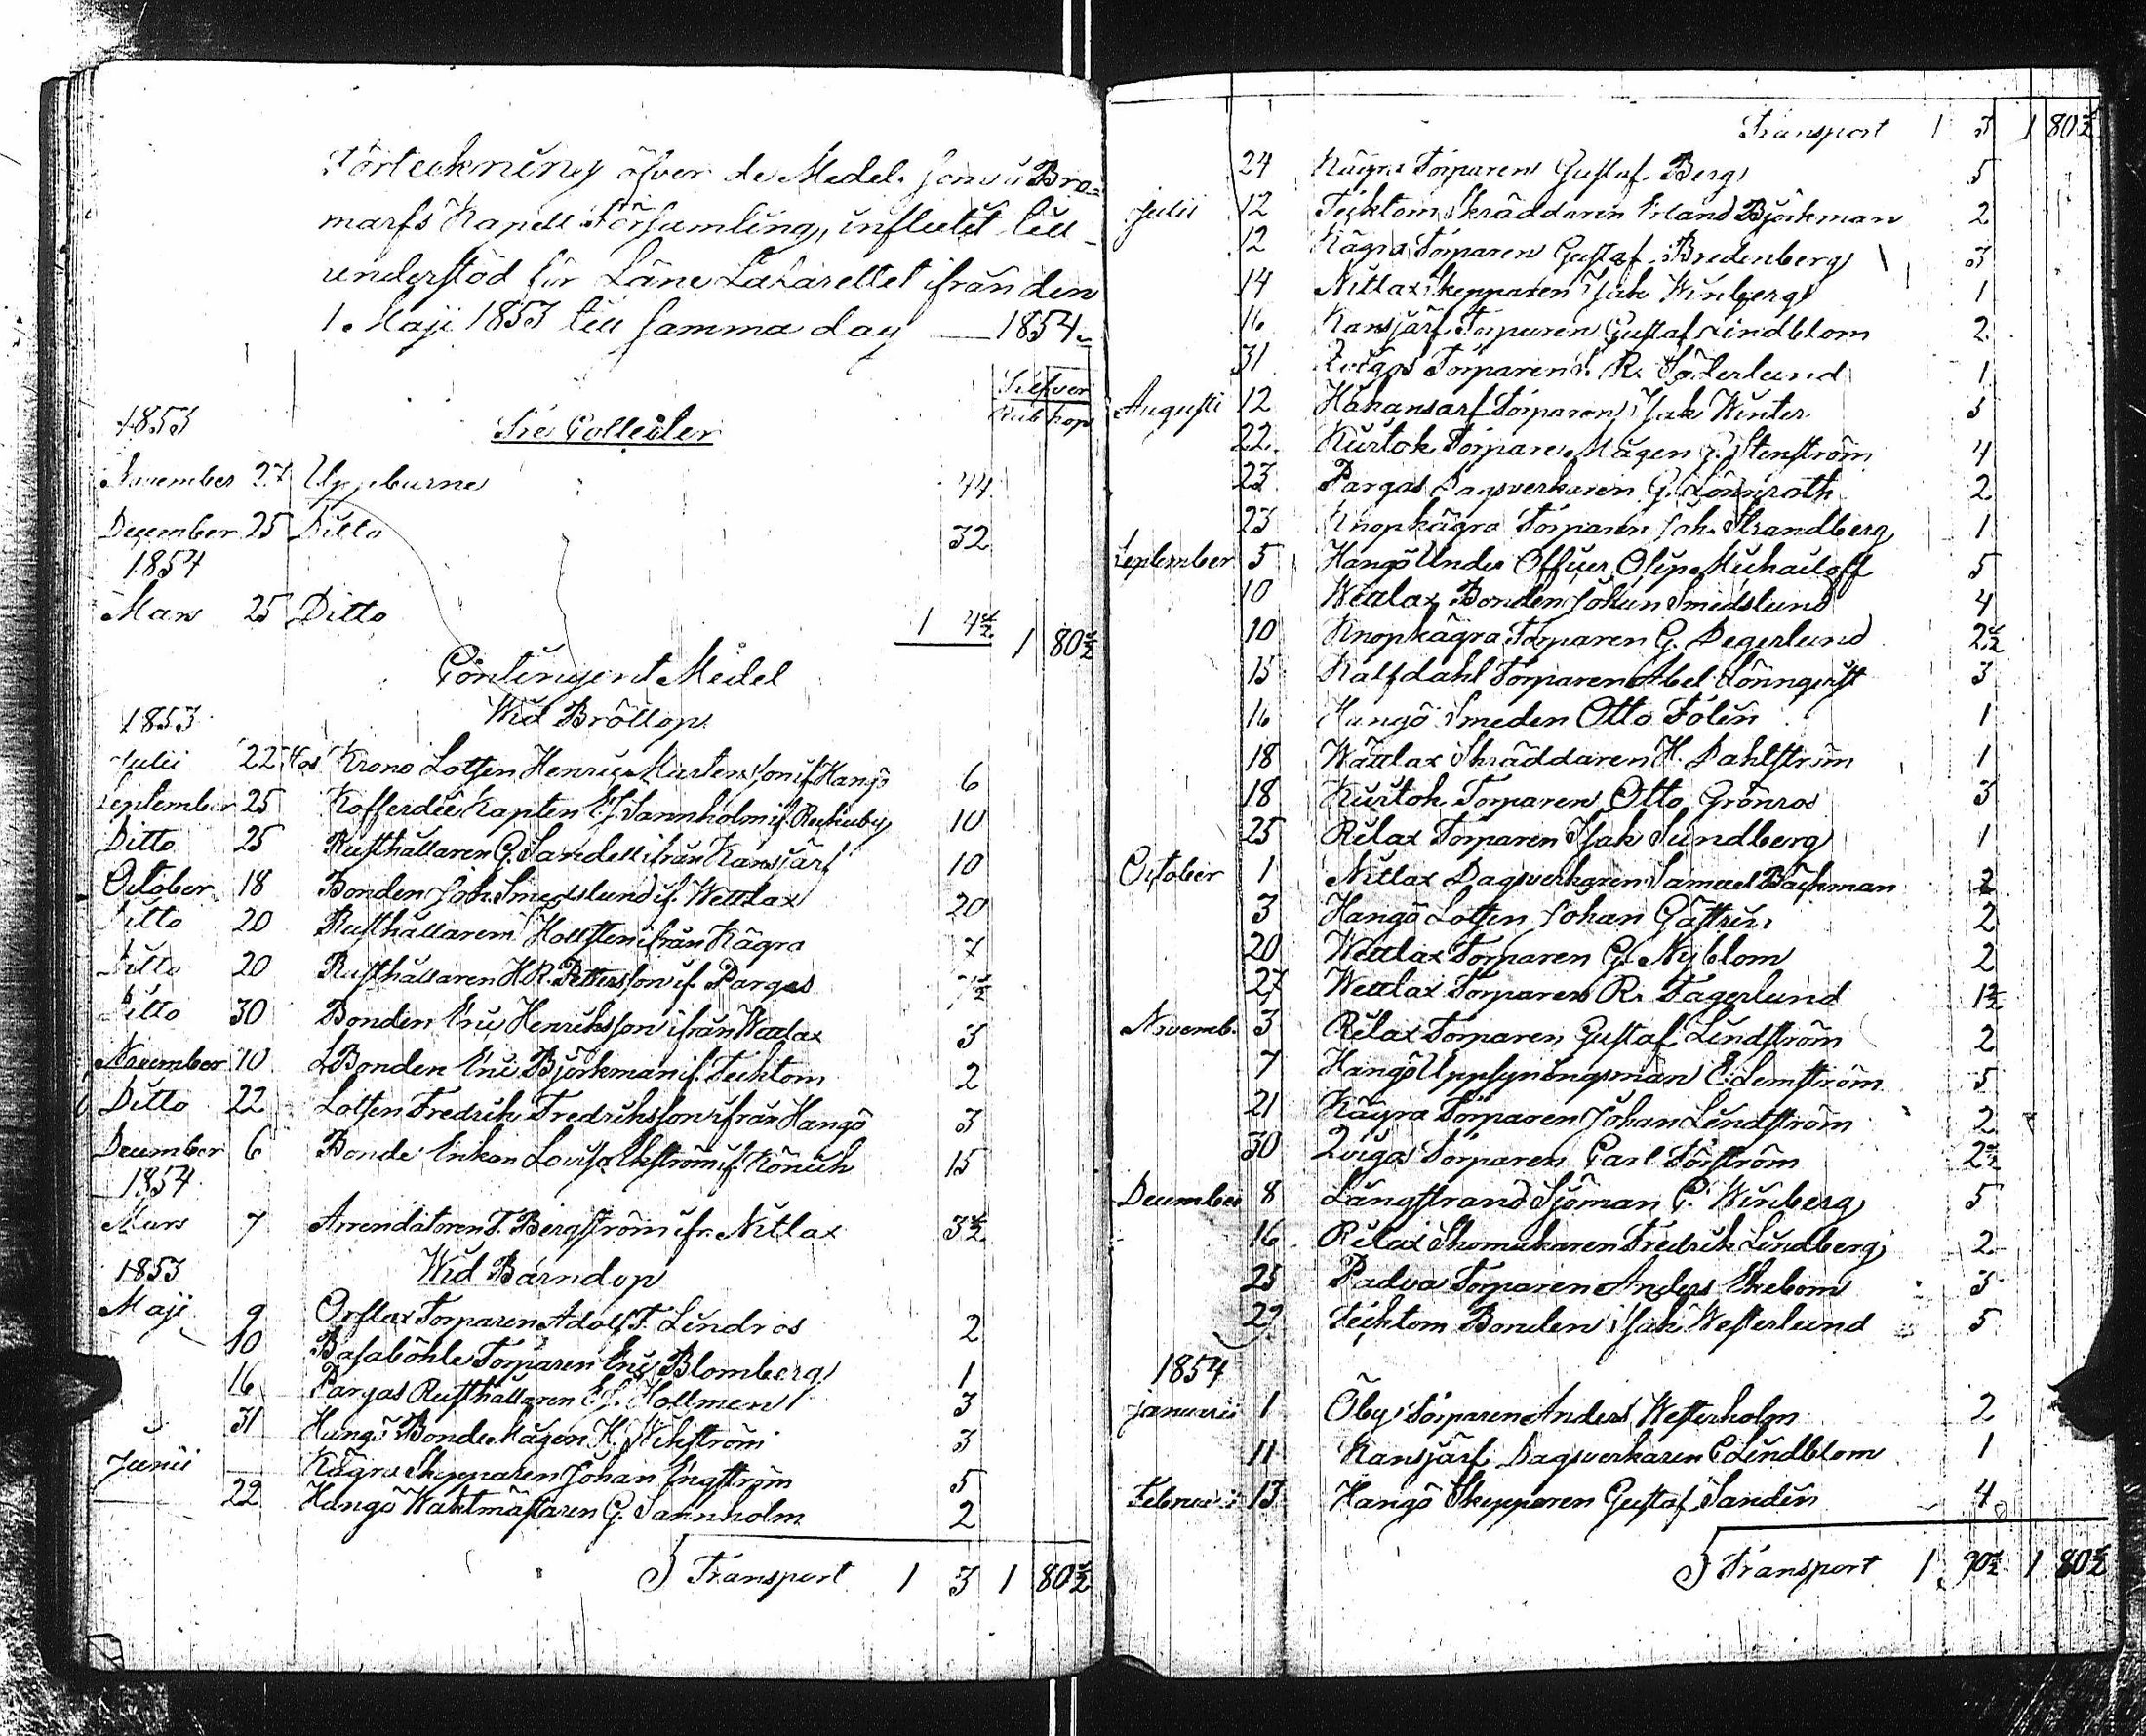 Förteckning öfver de Medel, som i Bro=
marfs Kapell Församling, influtit till
understöd för Läne Lazarettet ifrån den
1. Maji 1853 till samma dag — 1854.
Silfver
Rub kop
1853
Tre Collecter
November 27 Uppburne 44
December 25 Ditto 32
1854
Mars 25 Ditto 1 4½ 1 80½
Contingent Medel
Wid Bröllop
1853
Julii 22 Hos Krono Lotsen Henric Martensson if. Hangö 6
September 25 Kofferdie Kapten E. J. Sannholm if. 10
Ditto 25 Rusthållaren G. Sandell ifrån Kansjärf 10
October 18 Bonden Joh. Smedslund if. Wettlax 20
Ditto 20 Rusthållaren Hollsten ifrån Kägra 7
Ditto 20 Rusthållaren H. R. Pettersson if. Pargas
Ditto 30 Bonden Eric Henriksson ifrån Wättlax 3
November 10 Bonden Eric Björkman if. Tecktom 2
Ditto 22 Lotsen Fredrik Fredriksson ifrån Hangö 3
December 6 Bonde Enkan Lovisa Ekström if. 15
1854
Mars 7 Arrendatoren T. Bergström ifr. Nitlax 3½
Wid Barndop
1853
Maji 9 Orslax Torparen Adolf F. Lindros 2
10 Basaböhle Torparen Eric Blomberg 1
16 Pargas Rusthållaren E. J. Hollmen 3
31 Hangö Bonde Mågen H. Wikström 3
Junii — Kägra Skepparen Johan Engström 5
22 Hangö Waktmästaren G. Sannholm 2
Transport 1 3 1 80½
Transport 1 3 1 80½
24 Kägra Torparen Gustaf Berg 5
Julii 12 Tecktom Skräddaren Erland Björkman 2
12 Kägra Torparen Gustaf Bredenberg 3
14 Nitlax Skepparen Isak Winberg 1
16 Kansjärf Torparen Gustaf Lindblom 2
31 Torparen R. Söderlund 1
Augusti 12 Håkansarf Torparen Isak Winter 3
22 Kurtok Torpare Mågen Stenström 4
23 Pargas Dagsverkaren G. Lönnroth 2
23 Knopkägra Torparen Joh. Strandberg 1
September 5 Hangö Under Officer Osip Michailoff 5
10 Wättlax Bonden Johan Smidslund 4
10 Knopkägra Torparen G. Degerlund 2½
15 Kalfdahl Torparen Abel Lönnqvist 3
16 Hangö Smeden Otto Folin 1
18 Wättlax Skräddaren H. Dahlström 1
18 Kurtok Torparen Otto Grönros 3
25 Rilax Torparen Isak Sundberg 1
October 1 Nitlax Dagsverkaren Samuel Bäckman 2
3 Hangö Lotsen Johan 2
20 Wettlax Torparen G. Nyblom 2
27 Wettlax Torparen R. Fagerlund 1½
Novemb. 3 Rilax Torparen Gustaf Lindström 2
7 Hangö Uppsyningsman E. Lemström 5
21 Kägra Torparen Johan Lindström 2
30 Torparen Carl Törström 2½
December 8 Långstrand Sjöman C. Winberg 5
16 Rilax Skomakaren Fredrik Lindberg 2
25 Padva Torparen Anders Ekebom 3
27 Tecktom Bonden Isak Westerlund 5
1854
Januarii 1 Öby Torparen Anders Westerholm 2
11 Kansjärf Dagsverkaren C Lindblom 1
Februarii 13 Hangö Skepparen Gustaf Sandin 4
Transport 1 90½ 1 80½